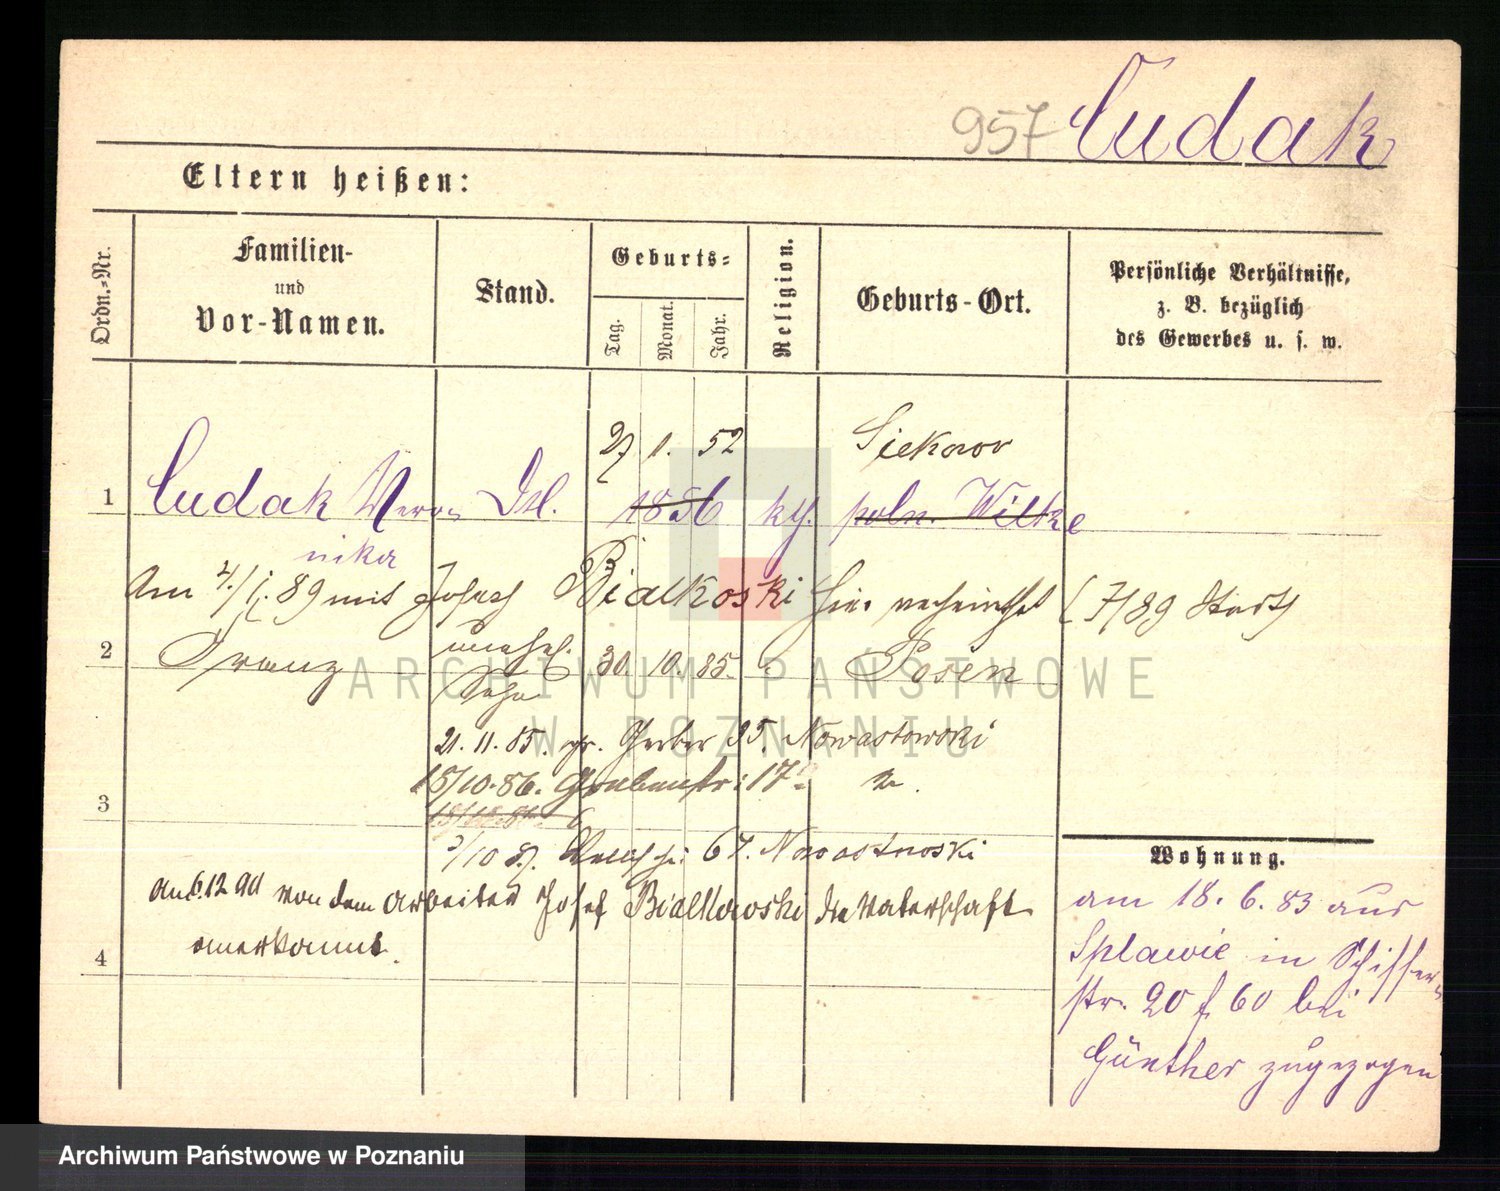 957 Cudak
Eltern heißen:
Ordn.-Nr.
Familien-
und
Vor-Namen.
Stand.
Geburts-
Tag.
Monat.
Jahr.
Religion.
Geburts-Ort.
Persönliche Verhältnisse,
z. B. bezüglich
des Gewerbes u. s. w.
27 1. 52 Siekowo
1 Cudak Vero- 1856 kth. poln. Wilke
nika
Am 4./1. 89 mit Josef Bialkoski hier verheirathet (7/89 Stdt)
2 Franz unehel. 30. 10. 85. Posen
Sohn
ARCHIWUM PAŃSTWOWE
W POZNANIU
21. 11. 85. gr. Gerber 35. Nowastowski
3 15/10. 86. Grabenstr: 17
/10 87. 67. Nowastowski
am 6 12 90 von dem Arbeiter Josef Bialkowski die Vaterschaft
anerkannt.
4
Wohnung.
am 18. 6. 83 aus
Splawie in Schiffer-
str. 20 f 60 bei
Günther zugezogen
Archiwum Państwowe w Poznaniu